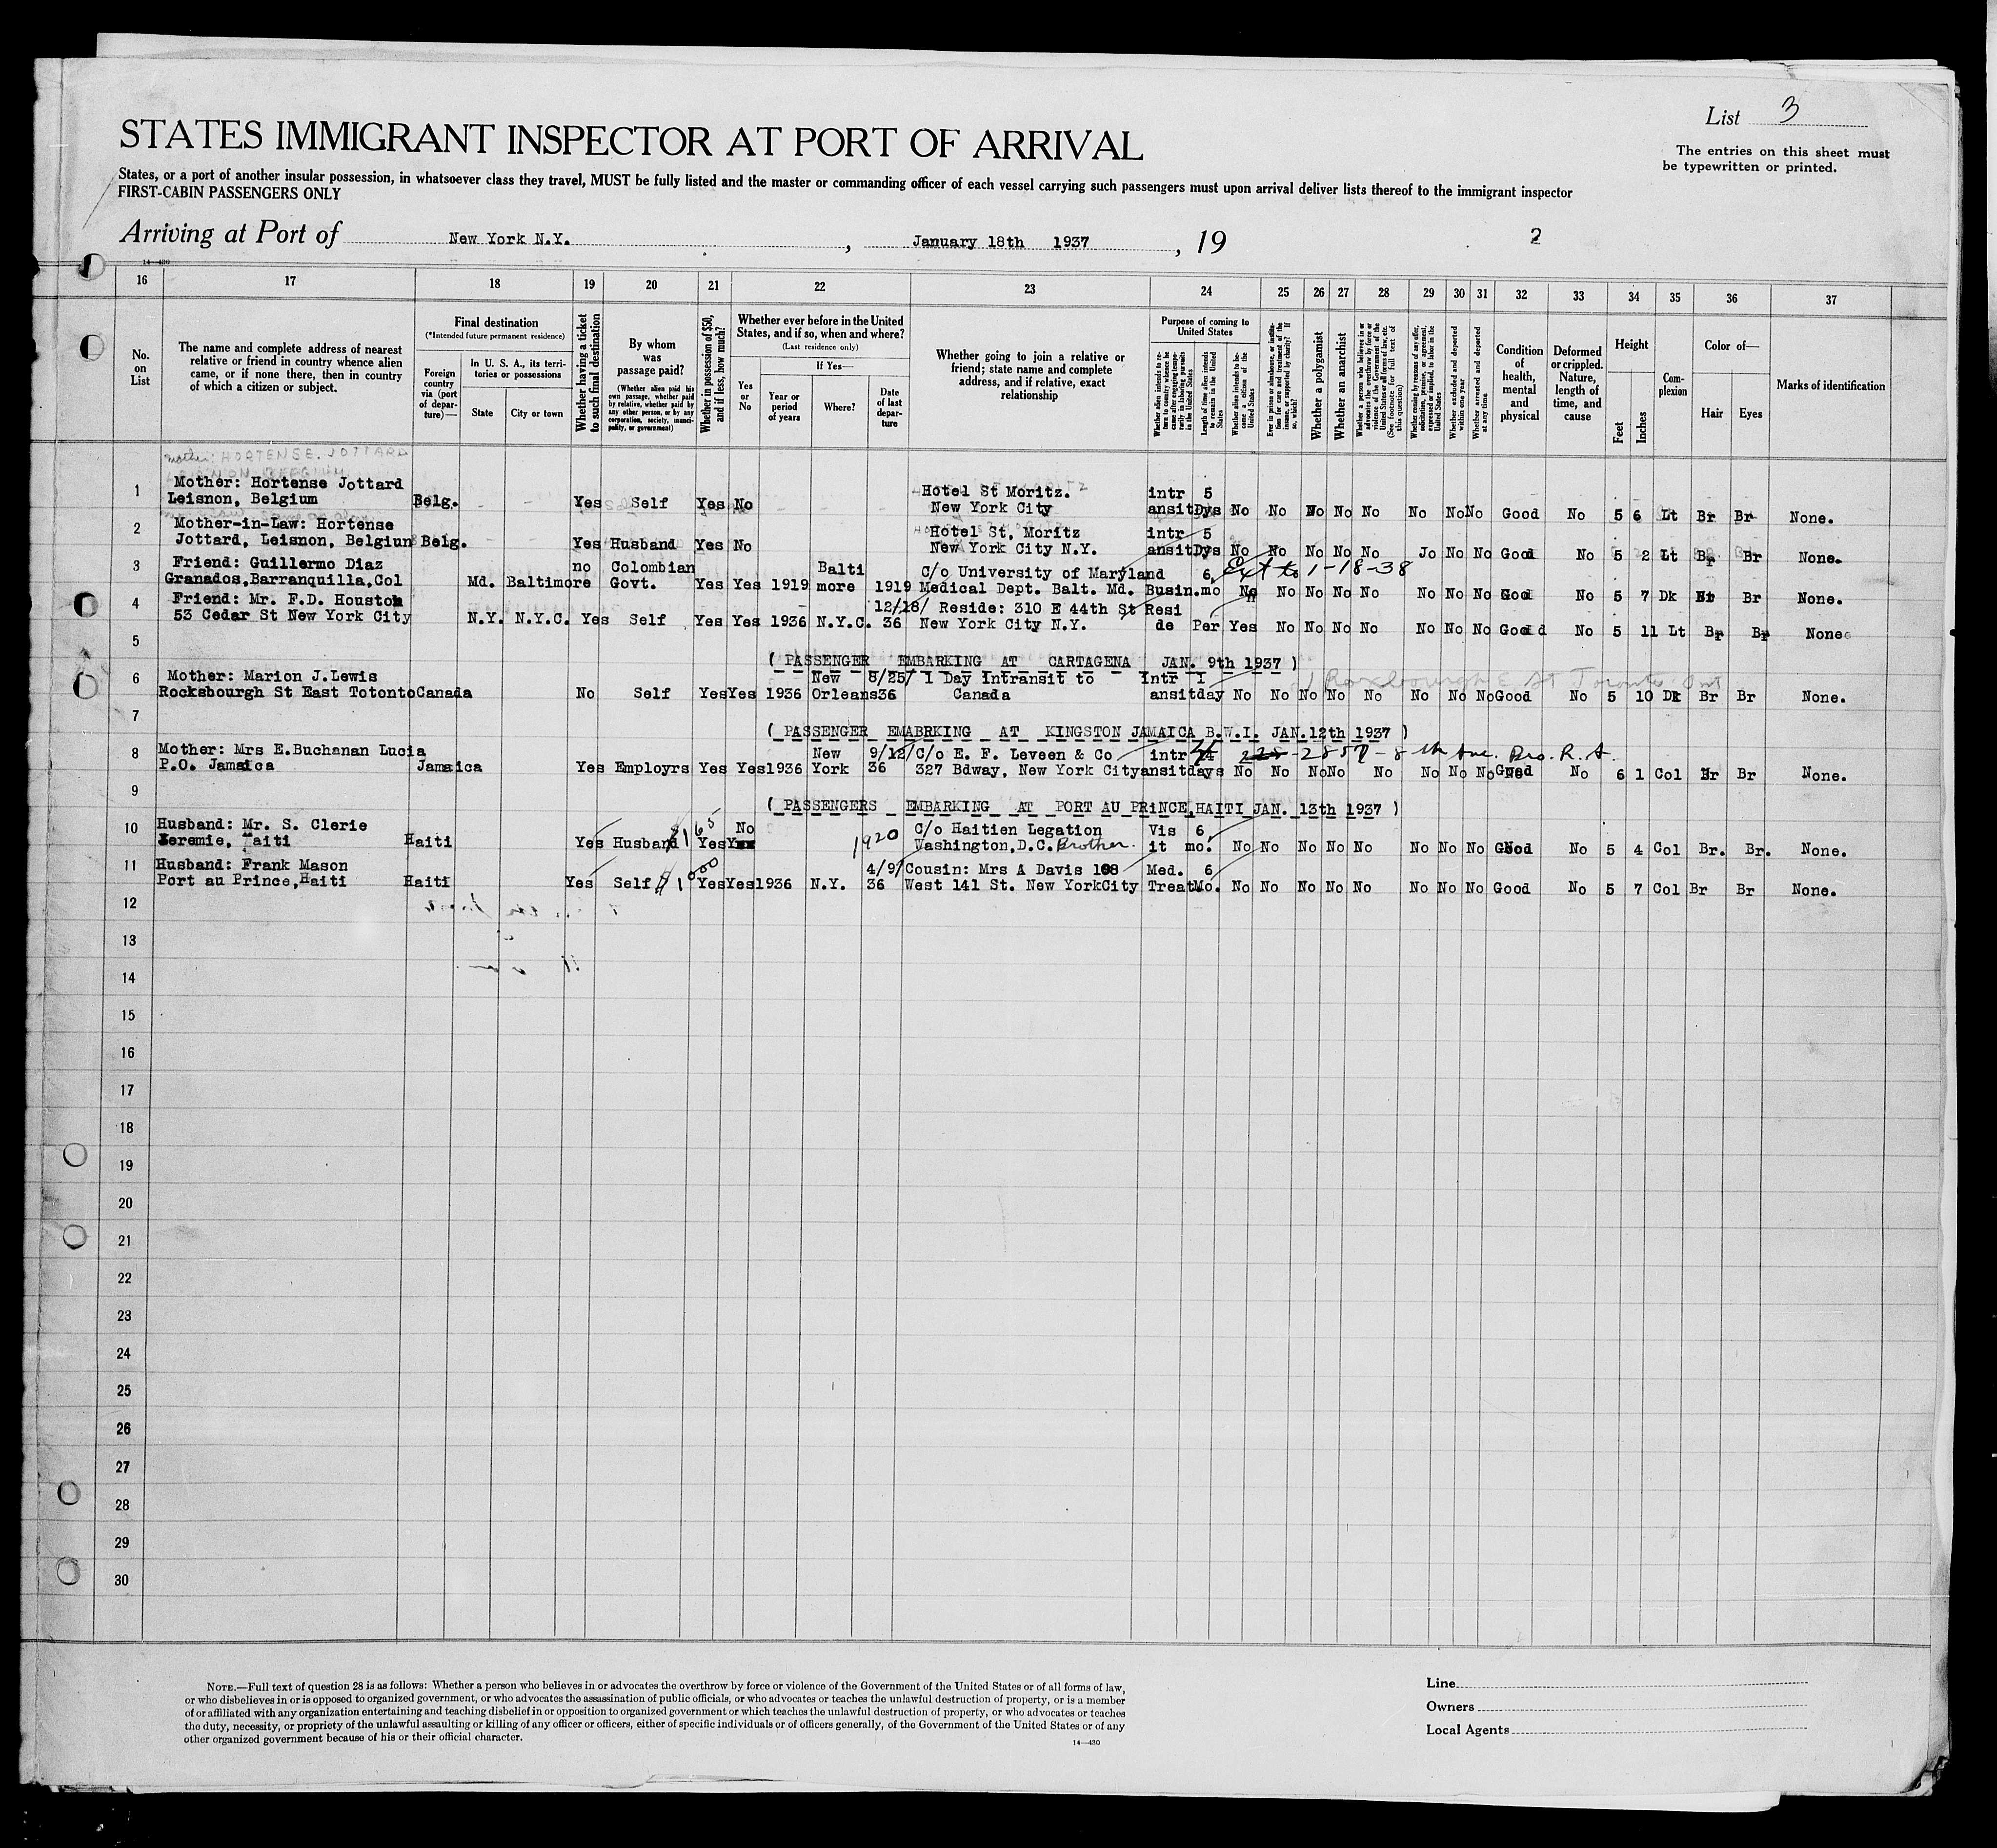 List 3
STATES IMMIGRANT INSPECTOR AT PORT OF ARRIVAL
The entries on this sheet must
be typewritten or printed.
States, or a port of another insular possession, in whatsoever class they travel, MUST be fully listed and the master or commanding officer of each vessel carrying such passengers must upon arrival deliver lists thereof to the immigrant inspector
FIRST-CABIN PASSENGERS ONLY
Arriving at Port of New York N.Y. , January 18th 1937 , 19
2
14—430
16 17 18 19 20 21 22 23 24 25 26 27 28 29 30 31 32 33 34 35 36 37
No. on List
The name and complete address of nearest
relative or friend in country whence alien
came, or if none there, then in country
of which a citizen or subject.
Final destination
(*Intended future permanent residence)
Foreign country via (port of departure)—
In U. S. A., its territories or possessions
State
City or town
Whether having a ticket to such final destination
By whom was passage paid?
(Whether alien paid his own passage, whether paid by relative, whether paid by any other person, or by any corporation, society, municipality, or government)
Whether in possession of $50, and if less, how much?
Whether ever before in the United
States, and if so, when and where?
(Last residence only)
Yes or No
If Yes—
Year or period of years
Where?
Date of last departure
Whether going to join a relative or
friend; state name and complete
address, and if relative, exact
relationship
Purpose of coming to United States
Whether alien intends to return to country whence he came after engaging temporarily in laboring pursuits in the United States
Length of time alien intends to remain in the United States
Whether alien intends to become a citizen of the United States
Ever in prison or almshouse, or institution for care and treatment of the insane, or supported by charity? If so, which?
Whether a polygamist
Whether an anarchist
Whether a person who believes in or advocates the overthrow by force or violence of the Government of the United States or all forms of law, etc. (See footnote for full text of this question)
Whether coming by reason of any offer, solicitation, promise, or agreement, expressed or implied, to labor in the United States
Whether excluded and deported within one year
Whether arrested and deported at any time
Condition of health, mental and physical
Deformed or crippled. Nature, length of time, and cause
Height
Feet
Inches
Complexion
Color of—
Hair
Eyes
Marks of identification
mother: HORTENSE. JOTTARD
1 Mother: Hortense Jottard
Leisnon, Belgium Belg. Yes Self Yes No Hotel St Moritz. New York City intransit 5 Dys No No No No No No No No Good No 5 6 Lt Br Br None.
2 Mother-in-Law: Hortense
Jottard, Leisnon, Belgiun Belg. Yes Husband Yes No Hotel St, Moritz New York City N.Y. intransit 5 Dys No No No No No Jo No No Good No 5 2 Lt Br Br None.
3 Friend: Guillermo Diaz
Granados,Barranquilla,Col Md. Baltimore no Colombian Govt. Yes Yes 1919 Baltimore 1919 C/o University of Maryland Medical Dept. Balt. Md. Busin. 6 mo No Ext to 1-18-38 No No No No No No No Good No 5 7 Dk Br None.
4 Friend: Mr. F.D. Houston
53 Cedar St New York City N.Y. N.Y.C. Yes Self Yes Yes 1936 N.Y.C. 12/18/36 Reside: 310 E 44th St New York City N.Y. Reside Per Yes No No No No No No No Good No 5 11 Lt Br Br None
5
( PASSENGER EMBARKING AT CARTAGENA JAN. 9th 1937 )
6 Mother: Marion J.Lewis
Rocksbourgh St East Totonto Canada No Self Yes Yes 1936 New Orleans 8/25/36 1 Day Intransit to Canada Intransit 1 day No No No No No No No No Good No 5 10 Dk Br Br None.
Roxbourgh E St Toronto Ont
7
( PASSENGER EMABRKING AT KINGSTON JAMAICA B.W.I. JAN.12th 1937 )
8 Mother: Mrs E.Buchanan Lucia
P.O. Jamaica Jamaica Yes Employrs Yes Yes 1936 New York 9/12/36 C/o E. F. Leveen & Co 327 Bdway, New York City intransit days No No No No No No No No Good No 6 1 Col Br Br None.
2857-8th Ave.
9
( PASSENGERS EMBARKING AT PORT AU PRINCE,HAITI JAN. 13th 1937 )
10 Husband: Mr. S. Clerie
Jeremie, Haiti Haiti Yes Husband $165 Yes No 1920 C/o Haitien Legation Washington,D.C. Brother. Visit 6 mo. No No No No No No No No Good No 5 4 Col Br. Br. None.
11 Husband: Frank Mason
Port au Prince,Haiti Haiti Yes Self $1000 Yes Yes 1936 N.Y. 4/9/36 Cousin: Mrs A Davis 108 West 141 St. New YorkCity Med. Treat 6 Mo. No No No No No No No No Good No 5 7 Col Br Br None.
12
13
14
15
16
17
18
19
20
21
22
23
24
25
26
27
28
29
30
NOTE.—Full text of question 28 is as follows: Whether a person who believes in or advocates the overthrow by force or violence of the Government of the United States or of all forms of law,
or who disbelieves in or is opposed to organized government, or who advocates the assassination of public officials, or who advocates or teaches the unlawful destruction of property, or is a member
of or affiliated with any organization entertaining and teaching disbelief in or opposition to organized government or which teaches the unlawful destruction of property, or who advocates or teaches
the duty, necessity, or propriety of the unlawful assaulting or killing of any officer or officers, either of specific individuals or of officers generally, of the Government of the United States or of any
other organized government because of his or their official character.
14—430
Line
Owners
Local Agents